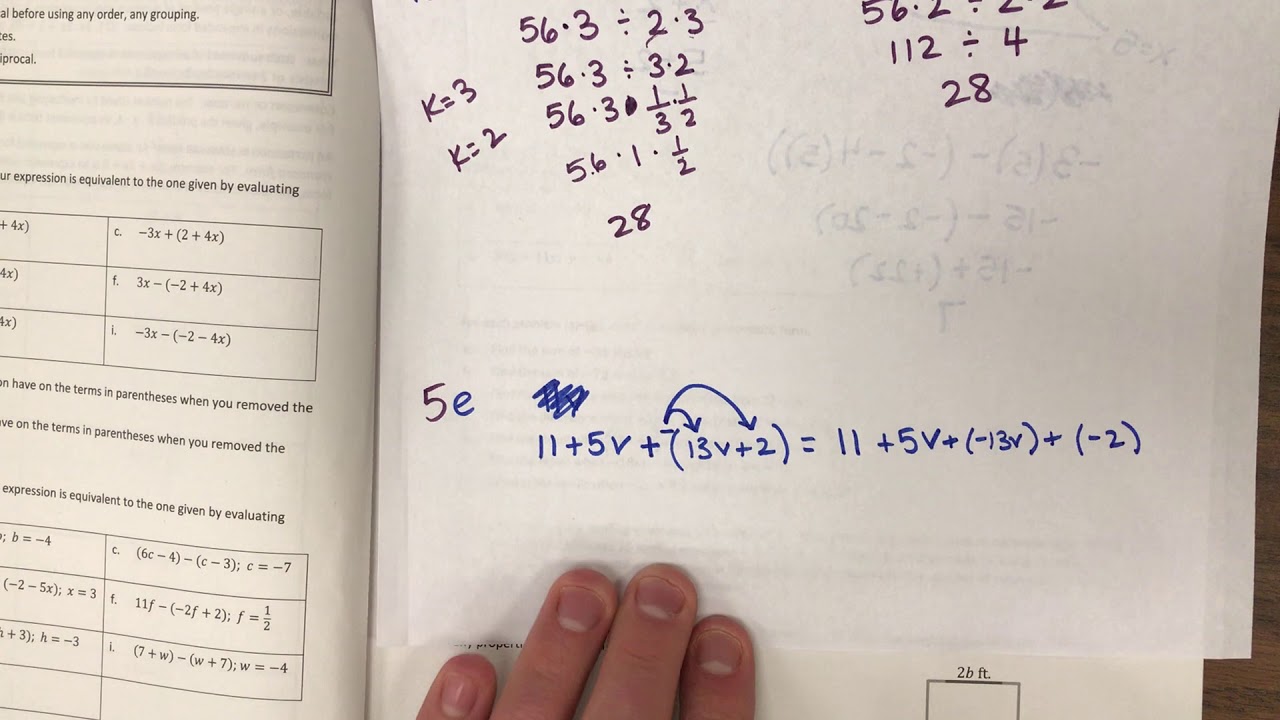 al before using any order, any grouping.
tes.
iprocal.
ur expression is equivalent to the one given by evaluating
+ 4x)
c. −3x + (2 + 4x)
4x)
f. 3x − (−2 + 4x)
4x)
i. −3x − (−2 − 4x)
on have on the terms in parentheses when you removed the
ve on the terms in parentheses when you removed the
expression is equivalent to the one given by evaluating
; b = −4
c. (6c − 4) − (c − 3); c = −7
(−2 − 5x); x = 3
f. 11f − (−2f + 2); f = 1/2
h + 3); h = −3
i. (7 + w) − (w + 7); w = −4
56·3 ÷ 2·3
56·3 ÷ 3·2
K=3
56·3· 1/3 · 1/2
K=2
56·1· 1/2
28
56·2 ÷ 2·2
112 ÷ 4
28
5e
11+5v+-(13v+2) = 11 +5v+(-13v)+ (-2)
2b ft.